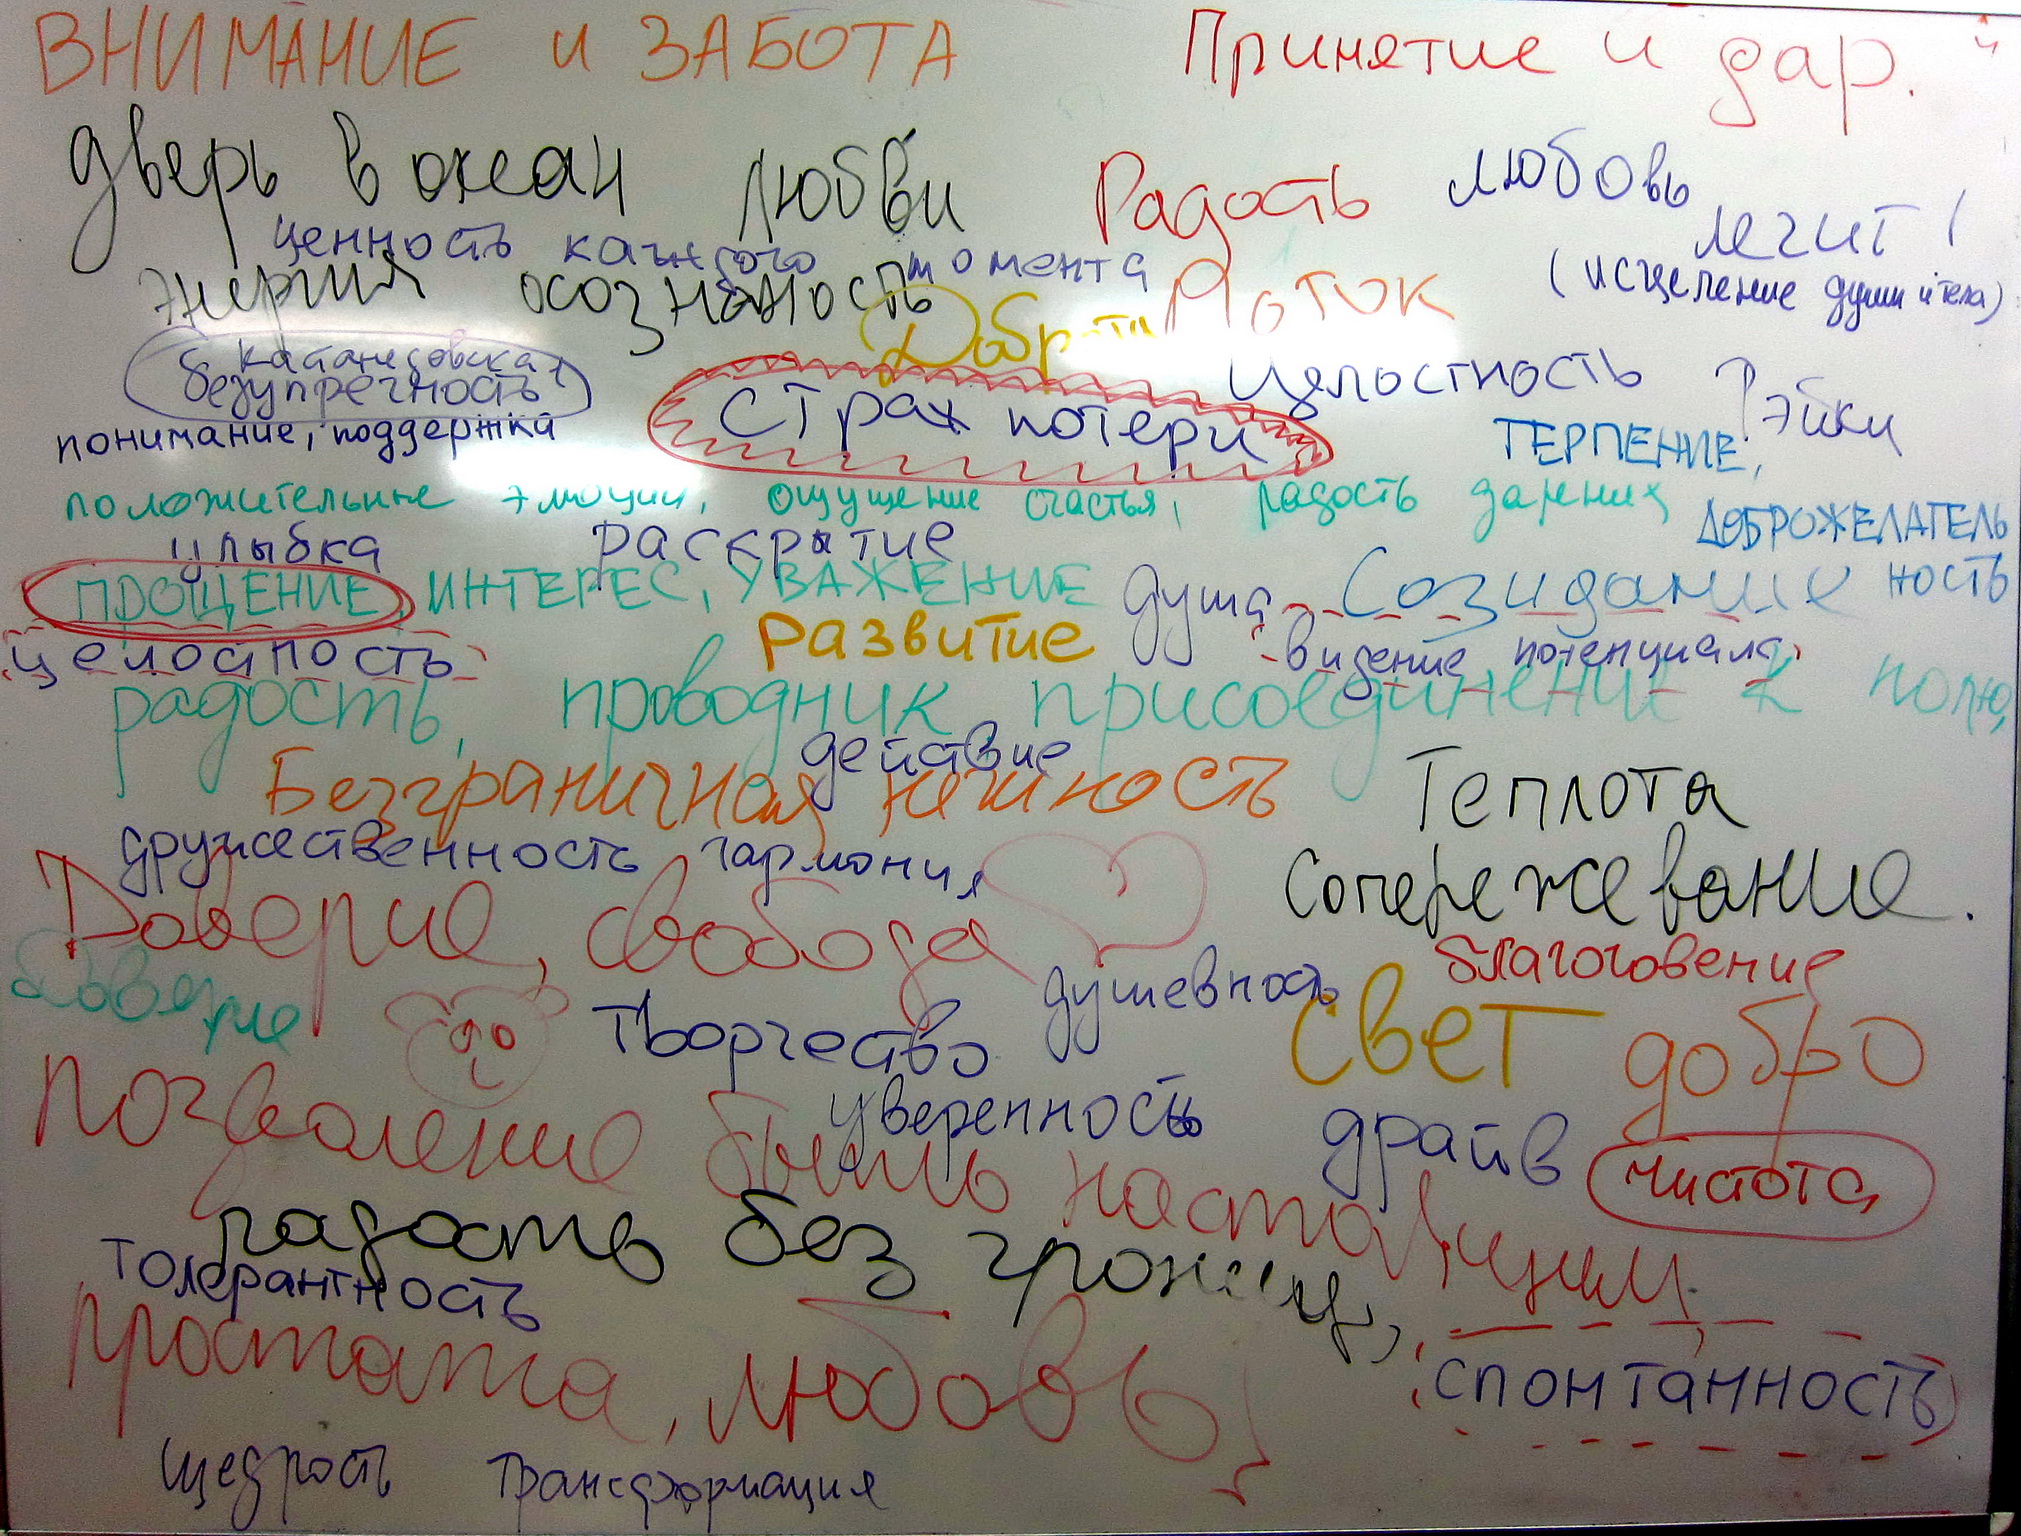 ВНИМАНИЕ и ЗАБОТА
Принятие и дар.
дверь в океан любви
Радость
любовь
лечит!
(исцеление души и тела)
ценность каждого момента
энергия осознаность
Поток
Доброта
Целостность
Рэйки
безупречность
понимание, поддержка
страх потери
ТЕРПЕНИЕ,
ДОБРОЖЕЛАТЕЛЬ
ность
положительные эмоции, ощущение счастья, радость дарения
улыбка
раскрытие
ПРОЩЕНИЕ, ИНТЕРЕС, УВАЖЕНИЕ
душа
Созидание
Развитие
видение потенциала
целостность
радость, проводник присоединение к полю,
действие
Безграничная нежность
Теплота
дружественность гармония
Сопережевание.
Доверие, свобода
благоговение
Доверие
душевность
Творчество
свет
добро
уверенность
Позволение быть настоящим
драйв
чистота
радость без границ,
толерантность
простота, любовь
спонтанность
щедрость трансформация